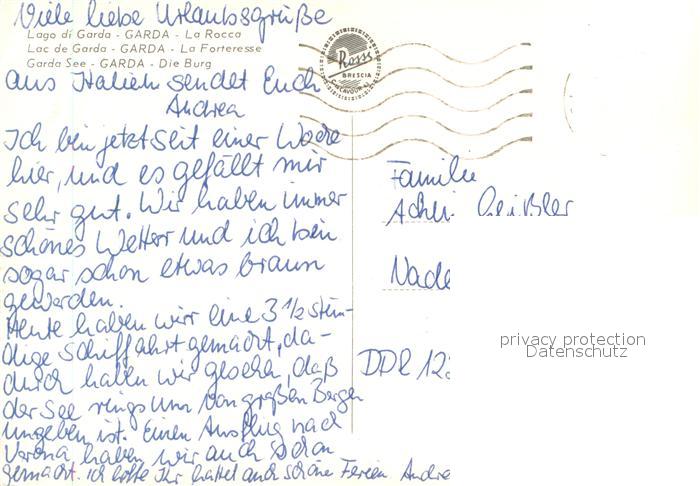 Viele liebe Urlaubsgrüße
Lago di Garda - GARDA - La Rocca
Lac de Garda - GARDA - La Forteresse
Garda See - GARDA - Die Burg
aus Italien sendet Euch
Andrea
Ich bin jetzt seit einer Woche
hier, und es gefällt mir
sehr gut. Wir haben immer
schönes Wetter und ich bin
sogar schon etwas braun
geworden.
Heute haben wir eine 3 1/2 stün-
dige Schiffahrt gemacht, da-
durch haben wir gesehen, daß
der See rings um von großen Bergen
umgeben ist. Einen Ausflug nach
Verona haben wir auch schon
gemacht. Ich hoffe Ihr hattet auch schöne Ferien Andre
Ross
BRESCIA
Familie
Geißler
Nade
DDR 12
privacy protection
Datenschutz